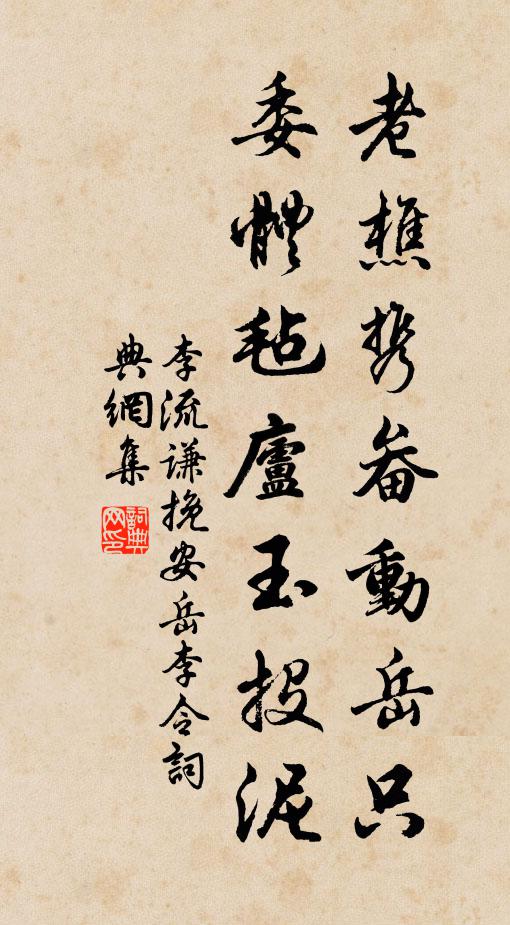 老樵携畚動岳只
委體毡廬玉投泥
李流谦挽安岳李令詞
典網集
詞典網印